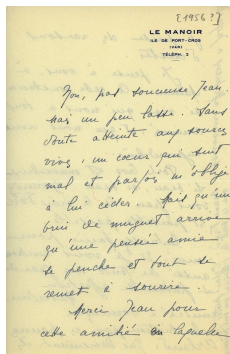 [1956?]
LE MANOIR
ILE DE PORT-CROS
(VAR)
TÉLÉPH. 3
Non, pas soucieuse Jean.
Mais un peu lasse. Sans
doute atteinte aux sources
vives, un cœur qui suit
mal et parfois m'oblige
à lui céder. Mais qu'un
brin de muguet arrive
qu'une pensée amie
se penche et tout se
remet à sourire.
Merci Jean pour
cette amitié en laquelle